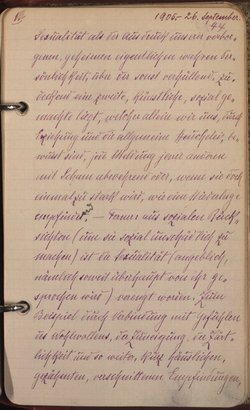 1906 - 26. September
Sexualität als der Ausdruck unserer verbor-
genen, geheimen eigentlichen wahren Per-
sönlichkeit, über die sonst verhüllend, zu-
deckend eine zweite, künstliche, sozial ge-
machte liegt, welche allein wir uns, durch
Erziehung und die allgemeine Heuchelei, be-
wusst sind, zur Geltung jene anderen
mit Scham abwehrend oder, wenn sie doch
einmal zu stark wird, wie eine Niederlage
empfindet. — Ferner aus sozialen Rück-
sichten (um sie sozial unschädlich zu
machen) ist die Sexualität (angeblich,
nämlich soweit überhaupt von ihr ge-
sprochen wird) vermengt worden. Zum
Beispiel durch Verbindung mit Gefühlen
des Wohlwollens, der Zuneigung, der Zärt-
lichkeit und so weiter, kurz häuslichen,
gezähmten, verschnittenen Empfindungen